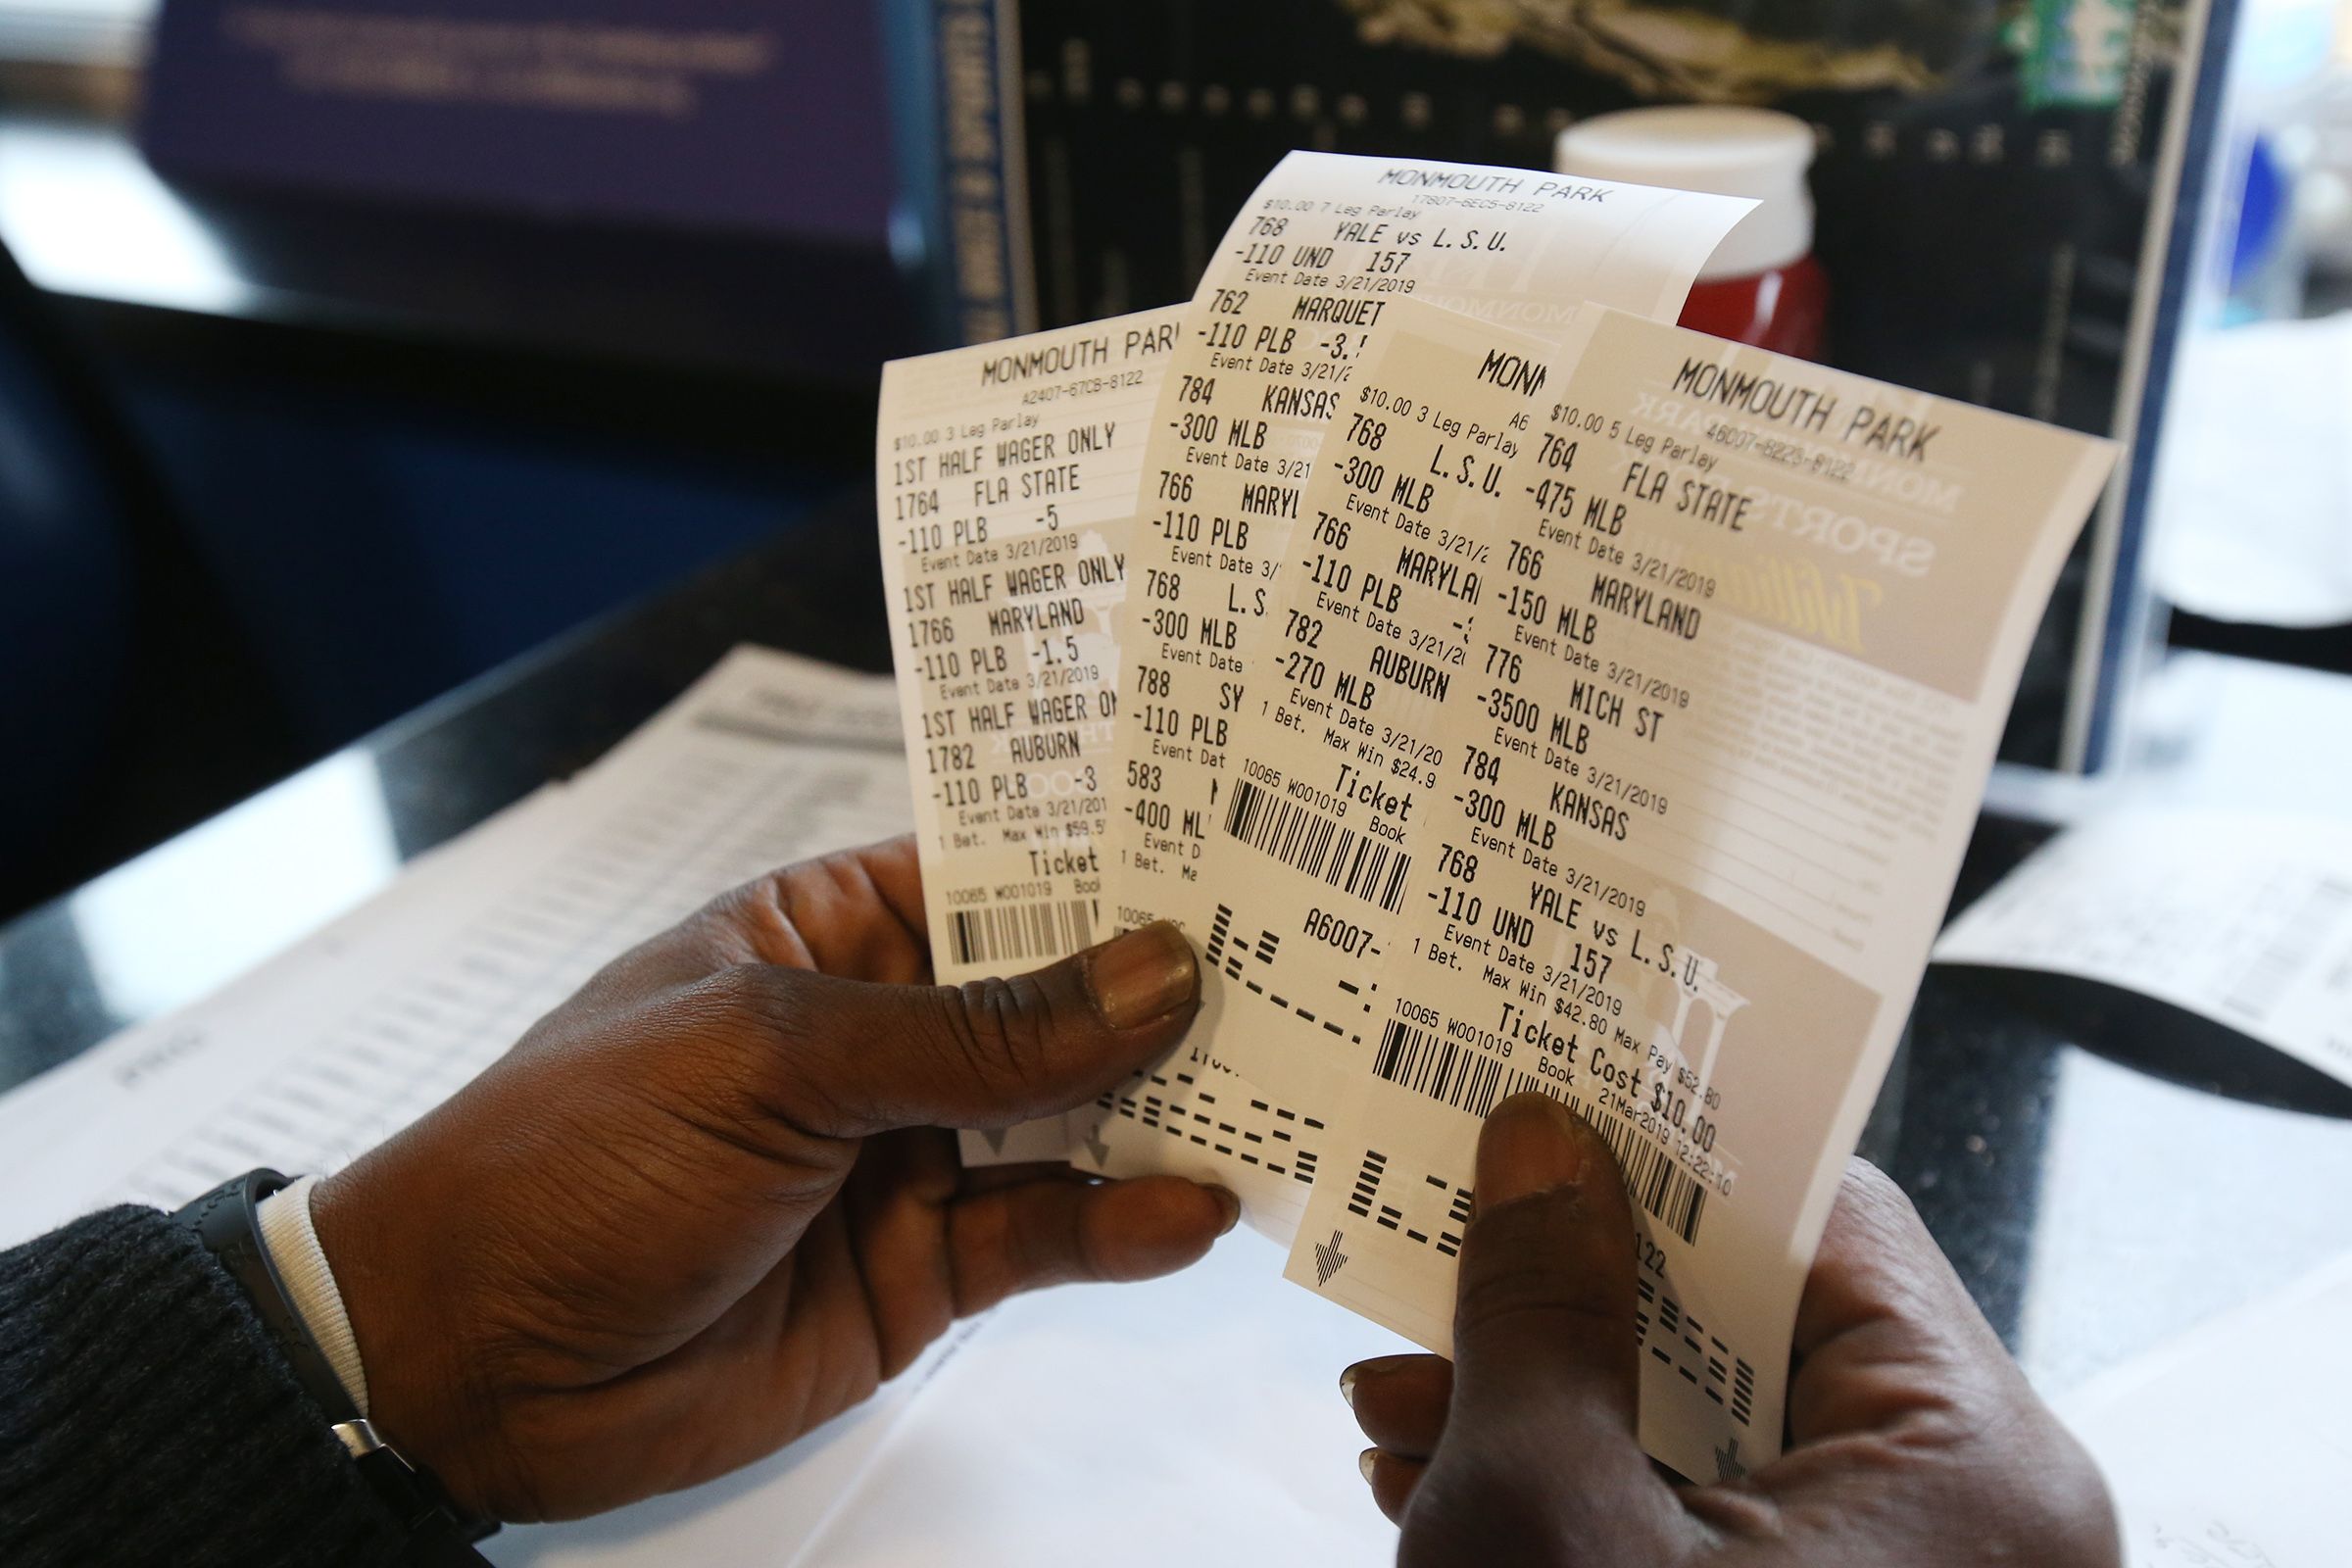 MONMOUTH PAR
A2407-67CB-8122
$10.00 3 Leg Parlay
1ST HALF WAGER ONLY
1764 FLA STATE
-110 PLB -5
Event Date 3/21/2019
1ST HALF WAGER ONLY
1766 MARYLAND
-110 PLB -1.5
Event Date 3/21/2019
1ST HALF WAGER ON
1782 AUBURN
-110 PLB -3
Event Date 3/21/201
1 Bet. Max Win $59.5
Ticket
10065 W001019 Boo
MONMOUTH PARK
17807-6EC5-8122
$10.00 7 Leg Parlay
768 YALE vs L.S.U.
-110 UND 157
Event Date 3/21/2019
762 MARQUET
-110 PLB -3.
Event Date 3/21/2
784 KANSAS
-300 MLB
Event Date 3/21
766 MARYL
-110 PLB
Event Date 3/
768 L.S
-300 MLB
Event Date
788 SY
-110 PLB
Event Dat
583
-400 ML
Event D
1 Bet. Ma
10065
MONM
A6
$10.00 3 Leg Parlay
768 L.S.U.
-300 MLB
Event Date 3/21/2
766 MARYLA
-110 PLB
Event Date 3/21/2
782 AUBURN
-270 MLB
Event Date 3/21/20
1 Bet. Max Win $24.9
Ticket
10065 W001019 Book
A6007-
MONMOUTH PARK
46D07-8223-8122
$10.00 5 Leg Parlay
764 FLA STATE
-475 MLB
Event Date 3/21/2019
766 MARYLAND
-150 MLB
Event Date 3/21/2019
776 MICH ST
-3500 MLB
Event Date 3/21/2019
784 KANSAS
-300 MLB
Event Date 3/21/2019
768 YALE vs L.S.U.
-110 UND 157
Event Date 3/21/2019
1 Bet. Max Win $42.80 Max Pay $52.80
Ticket Cost $10.00
10065 W001019 Book 21Mar2019 12:22:10
122